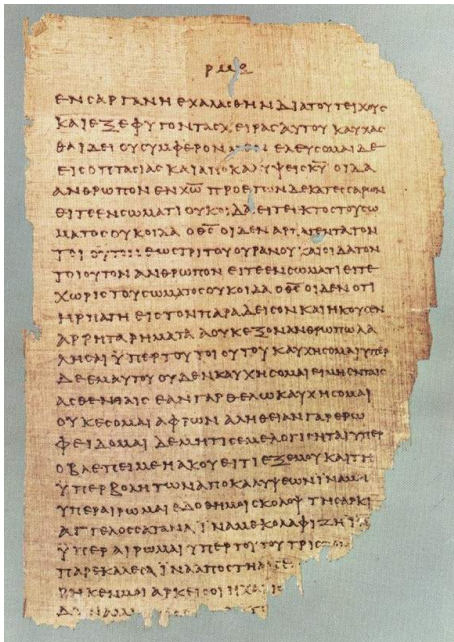 ΡΜΘ
ΕΝϹΑΡΓΑΝΗΕΧΑΛΑϹΘΗΝΔΙΑΤΟΥΤΕΙΧΟΥϹ
ΚΑΙΕΞΕΦΥΓΟΝΤΑϹΧΕΙΡΑϹΑΥΤΟΥΚΑΥΧΑϹ
ΘΑΙΔΕΙΟΥϹΥΜΦΕΡΟΝΜΕΝΕΛΕΥϹΟΜΑΙΔΕ
ΕΙϹΟΠΤΑϹΙΑϹΚΑΙΑΠΟΚΑΛΥΨΕΙϹΚ̅Υ̅ΟΙΔΑ
ΑΝΘΡΩΠΟΝΕΝΧ̅Ω̅ΠΡΟΕΤΩΝΔΕΚΑΤΕϹϹΑΡΩΝ
ΕΙΤΕΕΝϹΩΜΑΤΙΟΥΚΟΙΔΑΕΙΤΕΕΚΤΟϹΤΟΥϹΩ
ΜΑΤΟϹΟΥΚΟΙΔΑΟΘ̅Ϲ̅ΟΙΔΕΝΑΡΠΑΓΕΝΤΑΤΟΝ
ΤΟΙΟΥΤΟΝΕΩϹΤΡΙΤΟΥΟΥΡΑΝΟΥΚΑΙΟΙΔΑΤΟΝ
ΤΟΙΟΥΤΟΝΑΝΘΡΩΠΟΝΕΙΤΕΕΝϹΩΜΑΤΙΕΙΤΕ
ΧΩΡΙϹΤΟΥϹΩΜΑΤΟϹΟΥΚΟΙΔΑΟΘ̅Ϲ̅ΟΙΔΕΝΟΤΙ
ΗΡΠΑΓΗΕΙϹΤΟΝΠΑΡΑΔΕΙϹΟΝΚΑΙΗΚΟΥϹΕΝ
ΑΡΡΗΤΑΡΗΜΑΤΑΑΟΥΚΕΞΟΝΑΝΘΡΩΠΩΛΑ
ΛΗϹΑΙΫΠΕΡΤΟΥΤΟΙΟΥΤΟΥΚΑΥΧΗϹΟΜΑΙΥΠΕΡ
ΔΕΕΜΑΥΤΟΥΟΥΔΕΝΚΑΥΧΗϹΟΜΑΙΕΙΜΗΕΝΤΑΙϹ
ΑϹΘΕΝΕΙΑΙϹΕΑΝΓΑΡΘΕΛΩΚΑΥΧΗϹΟΜΑΙ
ΟΥΚΕϹΟΜΑΙΑΦΡΩΝΑΛΗΘΕΙΑΝΓΑΡΕΡΩ
ΦΕΙΔΟΜΑΙΔΕΜΗΤΙϹΕΜΕΛΟΓΙϹΗΤΑΙΥΠΕΡ
ΟΒΛΕΠΕΙΜΕΗΑΚΟΥΕΙΤΙΕΞΕΜΟΥΚΑΙΤΗ
ΫΠΕΡΒΟΛΗΤΩΝΑΠΟΚΑΛΥΨΕΩΝΪΝΑΜΗ
ΥΠΕΡΑΙΡΩΜΑΙΕΔΟΘΗΜΟΙϹΚΟΛΟΨΤΗϹΑΡΚΙ
ΑΓΓΕΛΟϹϹΑΤΑΝΑΪΝΑΜΕΚΟΛΑΦΙΖΗΪ
ΫΠΕΡΑΙΡΩΜΑΙΥΠΕΡΤΟΥΤΟΥΤΡΙϹ
ΠΑΡΕΚΑΛΕϹΑΪΝΑΑΠΟϹΤΗ
ΡΗΚΕΝΜΟΙΑΡΚΕΙϹΟΙΗΧΑΡΙϹ